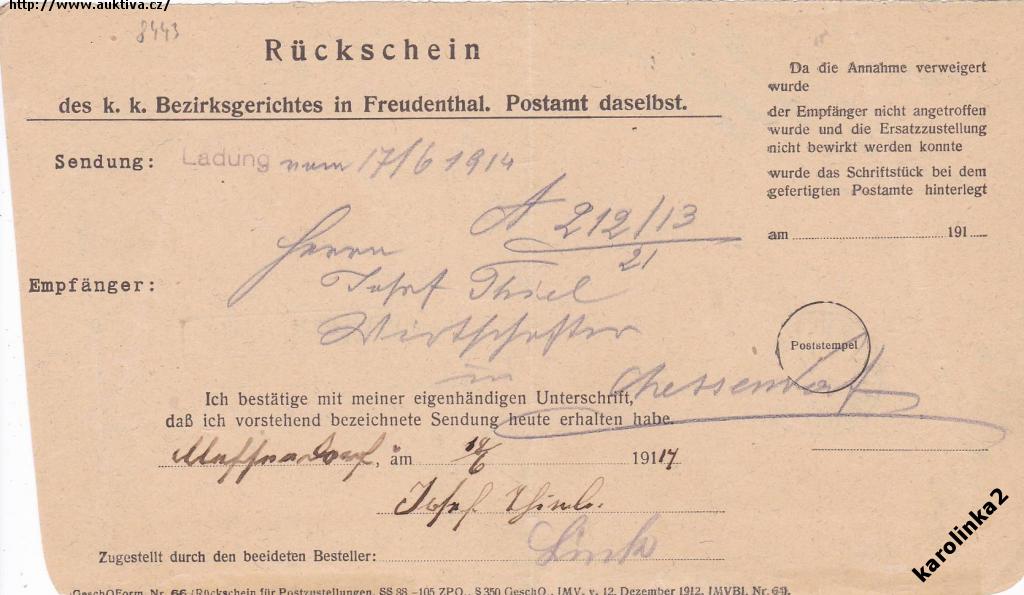 http://www.auktiva.cz/
8443
Rückschein
des k. k. Bezirksgerichtes in Freudenthal. Postamt daselbst.
Sendung: Ladung vom 17/6 1914
A 212/13
21
Empfänger:
Herrn
Josef Thiel
Wirtschafter
in Messendorf
Ich bestätige mit meiner eigenhändigen Unterschrift,
daß ich vorstehend bezeichnete Sendung heute erhalten habe.
Messendorf, am 18/6 191
Josef
Zugestellt durch den beeideten Besteller:
GeschOForm. Nr. 66 (Rückschein für Postzustellungen. §§ 88-105 ZPO., § 350 GeschO., JMV. v. 12. Dezember 1912, JMVBl. Nr. 64).
Da die Annahme verweigert
wurde
der Empfänger nicht angetroffen
wurde und die Ersatzzustellung
nicht bewirkt werden konnte
wurde das Schriftstück bei dem
gefertigten Postamte hinterlegt
am 191
Poststempel
karolinka2